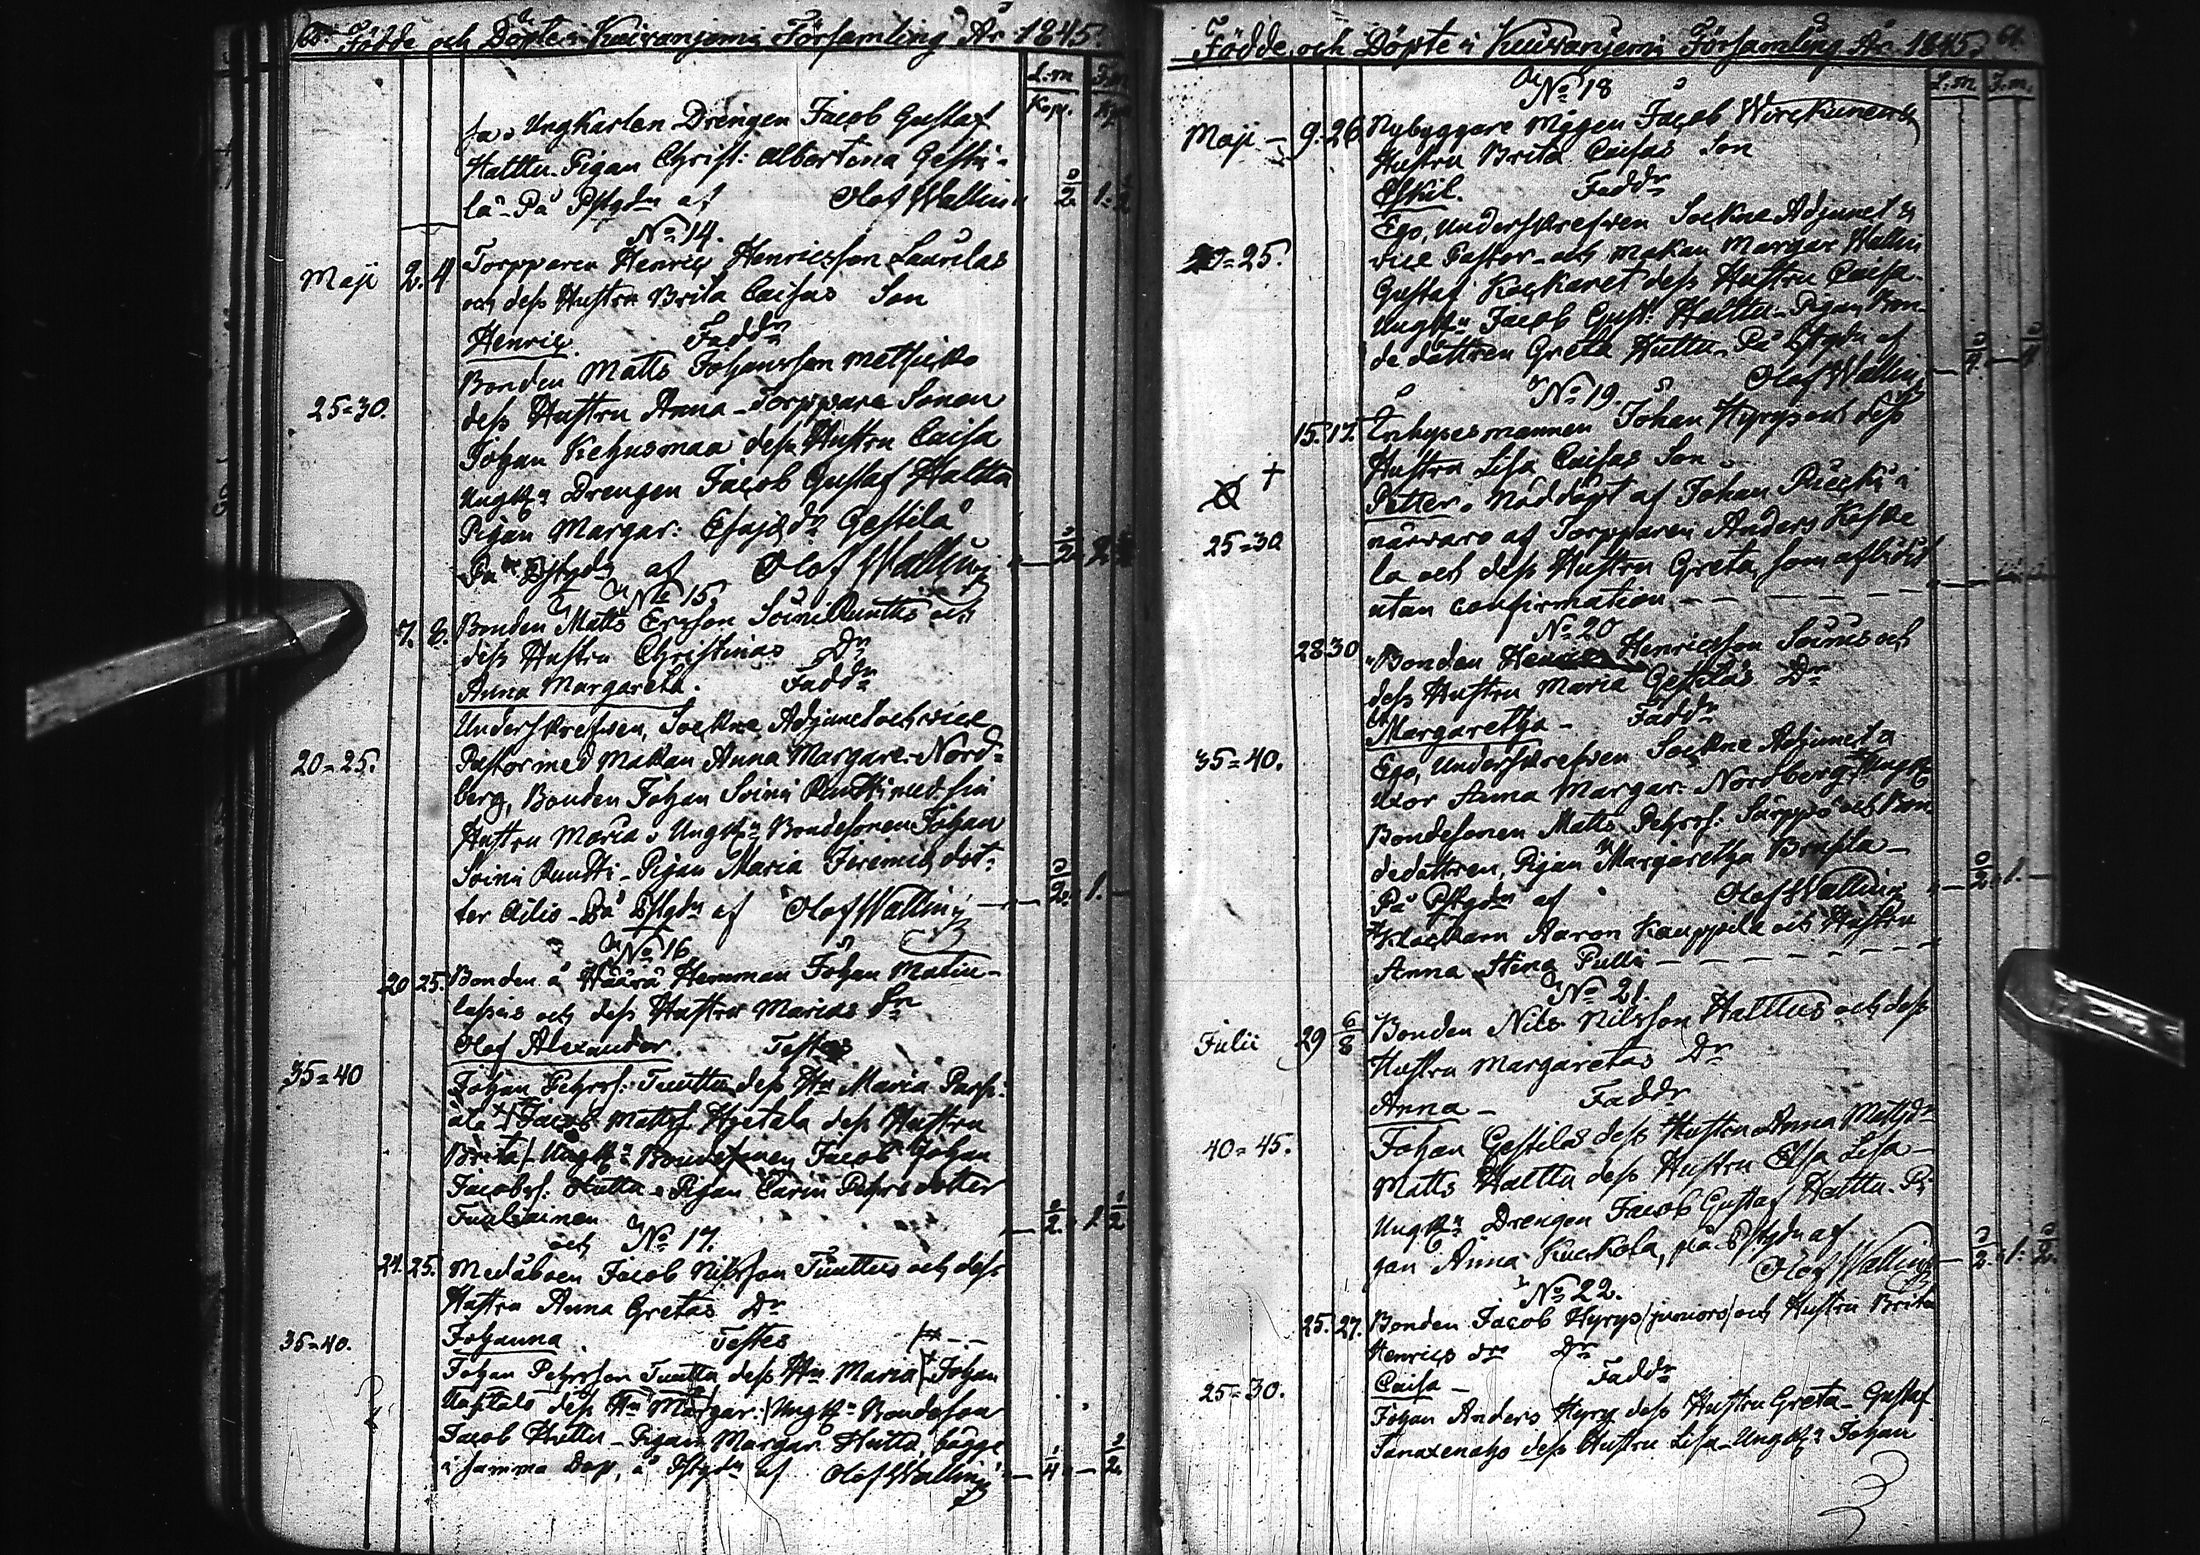 60. Födde och Döpte i Kuivaniemi Församling År 1845.
L.m. F.m.
Kop. Kop
Ungkarlen Drengen Jacob Gustaf
Halttu Pigan Christ: Albertena Gesti-
lä På Pstgdn af Olof Wallin 2 1. 2
No 14.
Maji 2. 4 Torpparen Henric Henricsson Laurilas
och dess Hustru Brita Caisas Son
Henric. Faddr
Bonden Matts Johansson
25=30. dess Hustru Anna - Torppare Sonen
Johan Kehusmaa dess Hustru Caisa
Ungkn Drengen Jacob Gustaf Halttu
Pigan Margar: Esajædr Gestilä
På Pstgdn af Olof Wallin
No 15.
7. 8. Bonden Matts Ersson Soini Runttis och
dess Hustru Christinas Dr
Anna Margareta. Faddr
Underskrefwen, Sockne Adjunct och vice
20=25. Pastor med Makan Anna Margare. Nord-
berg, Bonden Johan Soini Runtti med sin
Hustru Maria, Ungkn Bondesonen Johan
Soini Runtti - Pigan Maria Jeremiæ dot-
ter Ailio - På Pstgdn af Olof Wallin 2. 1. -
No 16
20 25. Bonden å Wäärä Hemman Johan Matin-
lassis och dess Hustrur Marias Sn
Olof Alexander. Testes
35=40 Johan Pehrss: Tuuttu dess Hu Maria
Jacob Mattss. Hjetala dess Hustru
Brita / Ungkn Bondesonen Jacob Johan
Jacobss. Huttu - Pigan Carin Pehrs dotter
2. 1. 2
och No 17.
24. 25. Jacob Nilsson Tuuttus och dess
Hustru Anna Gretas Dr
35=40. Johanna Testes
Johan Pehrsson Tuuttu dess Hu Maria Johan
dess Hu Margar. / Ungkn Bondeson
Jacob Huttu - Pigan Margar. Huttu, bägge
i samma Dop, å Pstgdn af Olof Wallin 4 2.
Födde och Döpte i Kuivaniemi Församling År 1845. 61.
L.m. F.m.
No 18
Maji 9. 26 Nybyggare Mågen Jacob Wirckunens
Hustru Brita Caisas Son
Eskil. Faddr
Ego, Underskrefwen Sockne Adjunct &
25. vice Pastor - och Makan Margar Wallin
Gustaf Kockaret dess Hustru Caisa.
Ungkn Jacob Gust. Halttu - Pigan Bon-
de dottren Greta Huttu - På Pstgdn af
Olof Wallin 4 4
No 19.
15. 17. Inhysesmannen Johan Hyrys och dess
Hustru Lisa Caisas Son
Petter. Nöddöpt af Johan i
25=30 närvaro af Torpparen Anders Koske
la och dess Hustru Greta, som aflidit
utan confirmation. - - -
No 20
28 30 Bonden Henricsson Soinis och
dess Hustru Maria Gestilas Dr
Margaretha - Faddr
35=40. Ego, Underskrefwen Sockne Adjunct &
uxor Anna Margar. Nordberg - Ungkn
Bondesonen Matts Pehrss. Särppö och Bon-
dedottren, Pigan Margaretha Brusila -
På Pstgdn af Olof Wallin 2. 1. -
Klockarn Aaron Kauppila och Hustru
Anna Stina Pulli - - -
No 21.
Julii 29 6/8 Bonden Nils Nilsson Halttus och dess
Hustru Margaretas Dr
Anna - Faddr
40=45. Johan Gestilas dess Hustru Anna Mattsdr
Matts Halttu dess Hustru Elsa Lisa -
Ungkn Drengen Jacob Gustaf Halttu - Pi
gan Anna Kuckola, på Pstgdn af
Olof Wallin 2. 1. 2.
No 22.
25. 27. Bonden Jacob Hyrys (juniors) och Hustru Brita
Henrics drs Dr
Caisa - Faddr
25=30. Johan Anders Hyry dess Hustru Greta - Gustaf
dess Hustru Lisa - Ungkn Johan